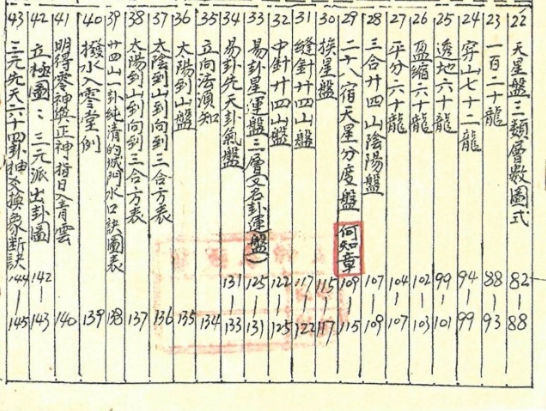 22 天星盤三類層數圖式 82-88
23 一百二十龍 88-93
24 穿山七十二龍 94-99
25 透地六十龍 99-101
26 盈縮六十龍 102-103
27 平分六十龍 104-107
28 三合廿四山陰陽盤 107-109
29 二十八宿天星分度盤(何知章 109-115
30 挨星盤 115-117
31 縫針廿四山盤 117-122
32 中針廿四山盤 122-125
33 易卦星運盤三層(又名卦運盤) 125-131
34 易卦先天卦氣盤 131-133
35 立向法須知 134
36 太陽到山盤 135
37 太陰到山到向到三合方表 136
38 太陽到山到向到三合方表 137
39 廿四山一卦純清的城門水口訣圖表 138
40 撥水入零堂例 139
41 明得零神與正神指日登青雲 140
42 立極圖：三元派出卦圖 142-143
43 三元先天六十四卦抽爻換象斷訣 144-145